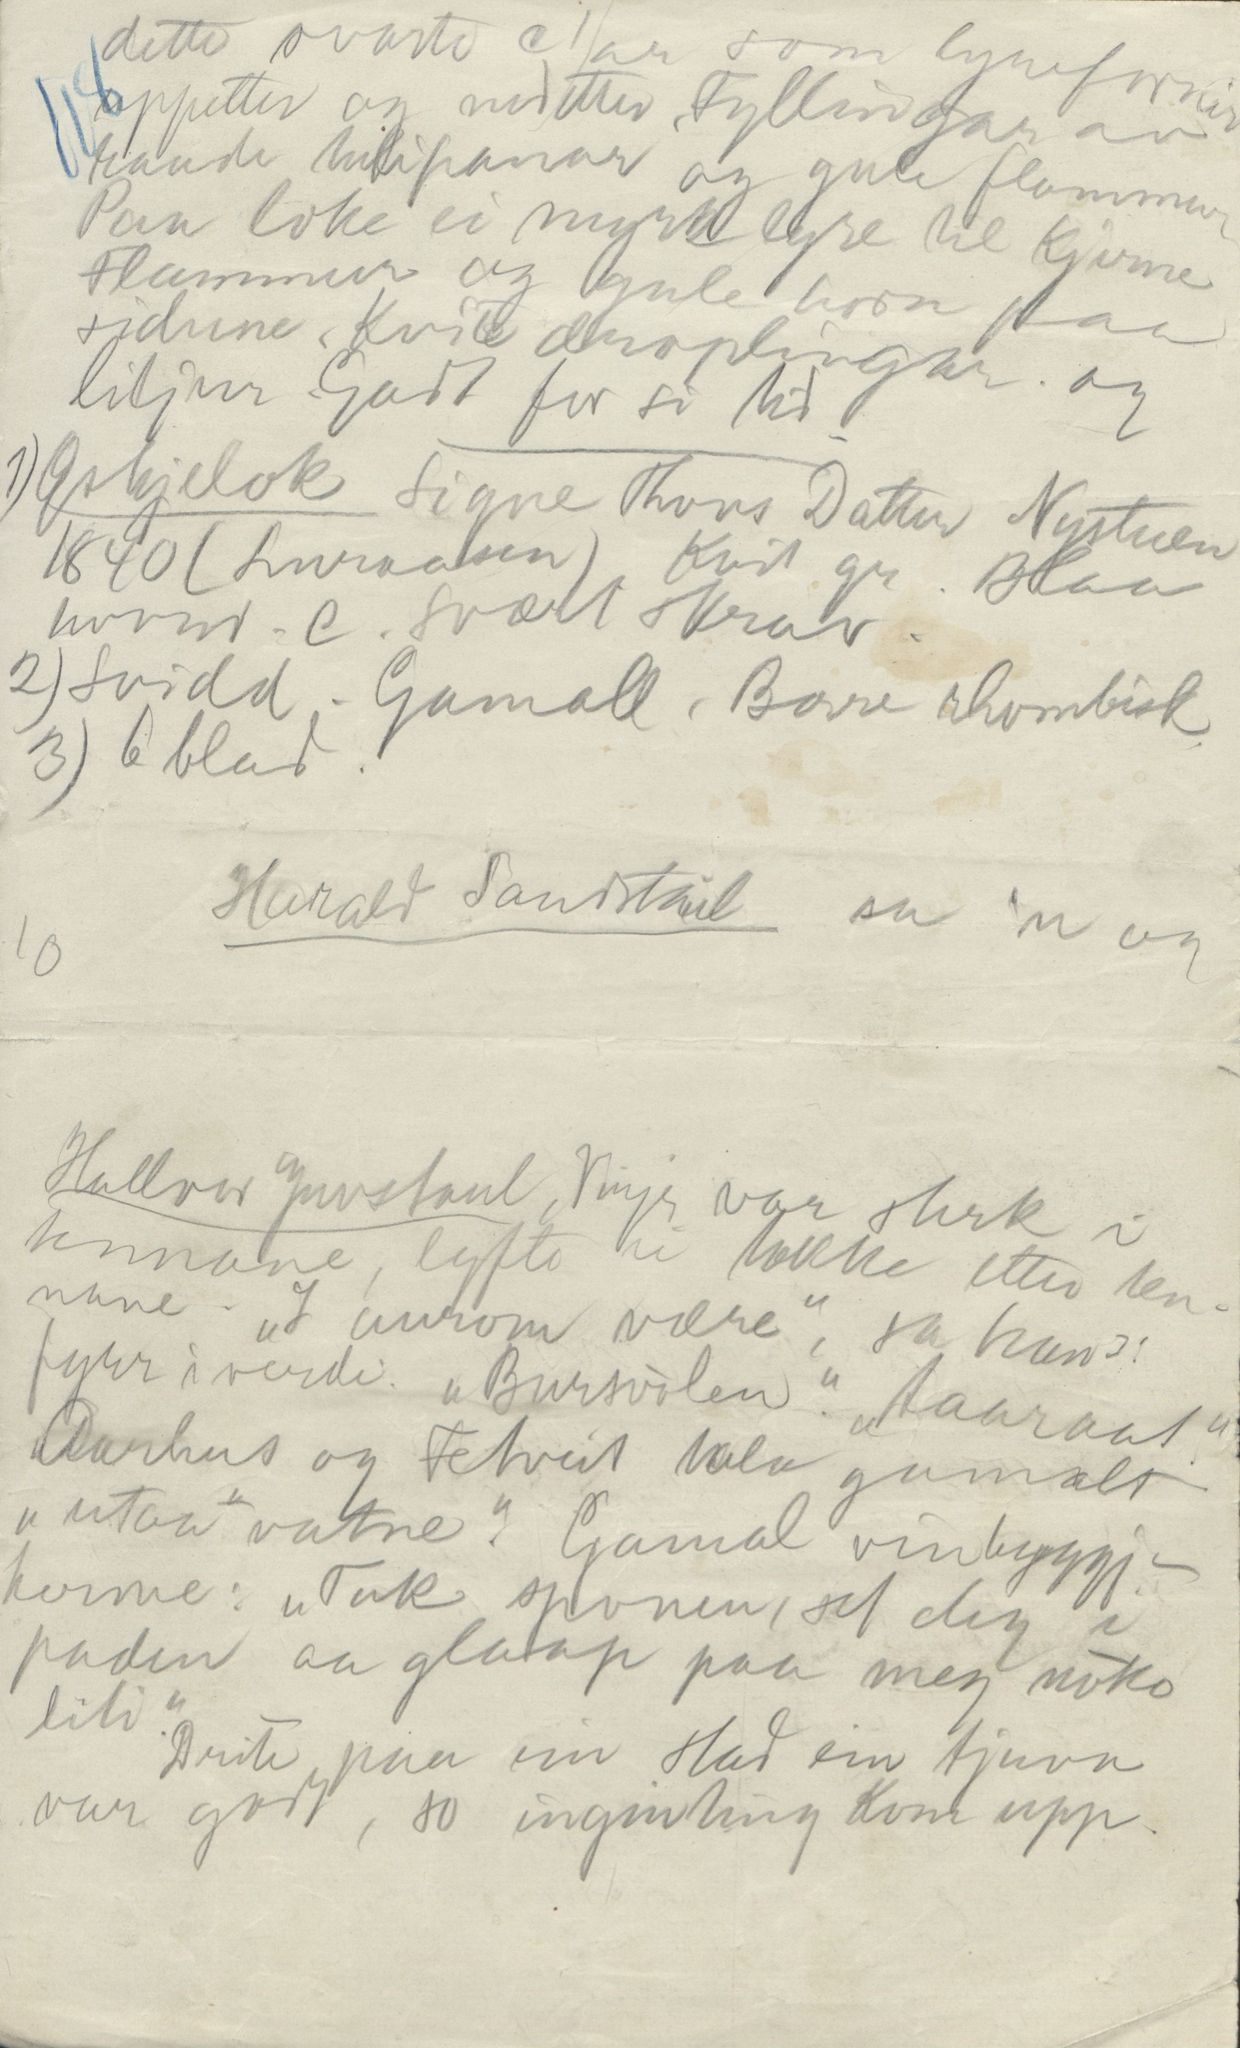 118
dette svarte c'ar som lyneformir
uppetter og nedetter. Fyllingar av
raude tulipanar og gule flammur
Paa loke ei myrk lyre til kjerne
Flammur og gule horn paa
sidune. Kvite og
liljur. Godt for si tid.
1) Øskjelok Signe Thors Datter Nystuen
1840 (Luraasen) Kvit gr. Blaa
C. Svært skrav.
2) Svidd. Gamall. Barre rhombisk.
3) 6 blad.
10 Harald Sandstaul sa 'n og
Hallvor Juvstaul, Vinje var sterk i
tennane, lyfte ei bøkke etter ten-
nane. "I aurom være", sa han :
fyrr i verdi. "Bursvolen". "Aaraat"
Aarhus og Fetveit tala gamalt
"utaa" vatne". Gamal vinbyggj-
korine: "Tak sponen, set deg i
paden aa glaap paa meg noko
liti".
Drite paa ein stad ein tjuva
var godt, so ingenting kom upp.